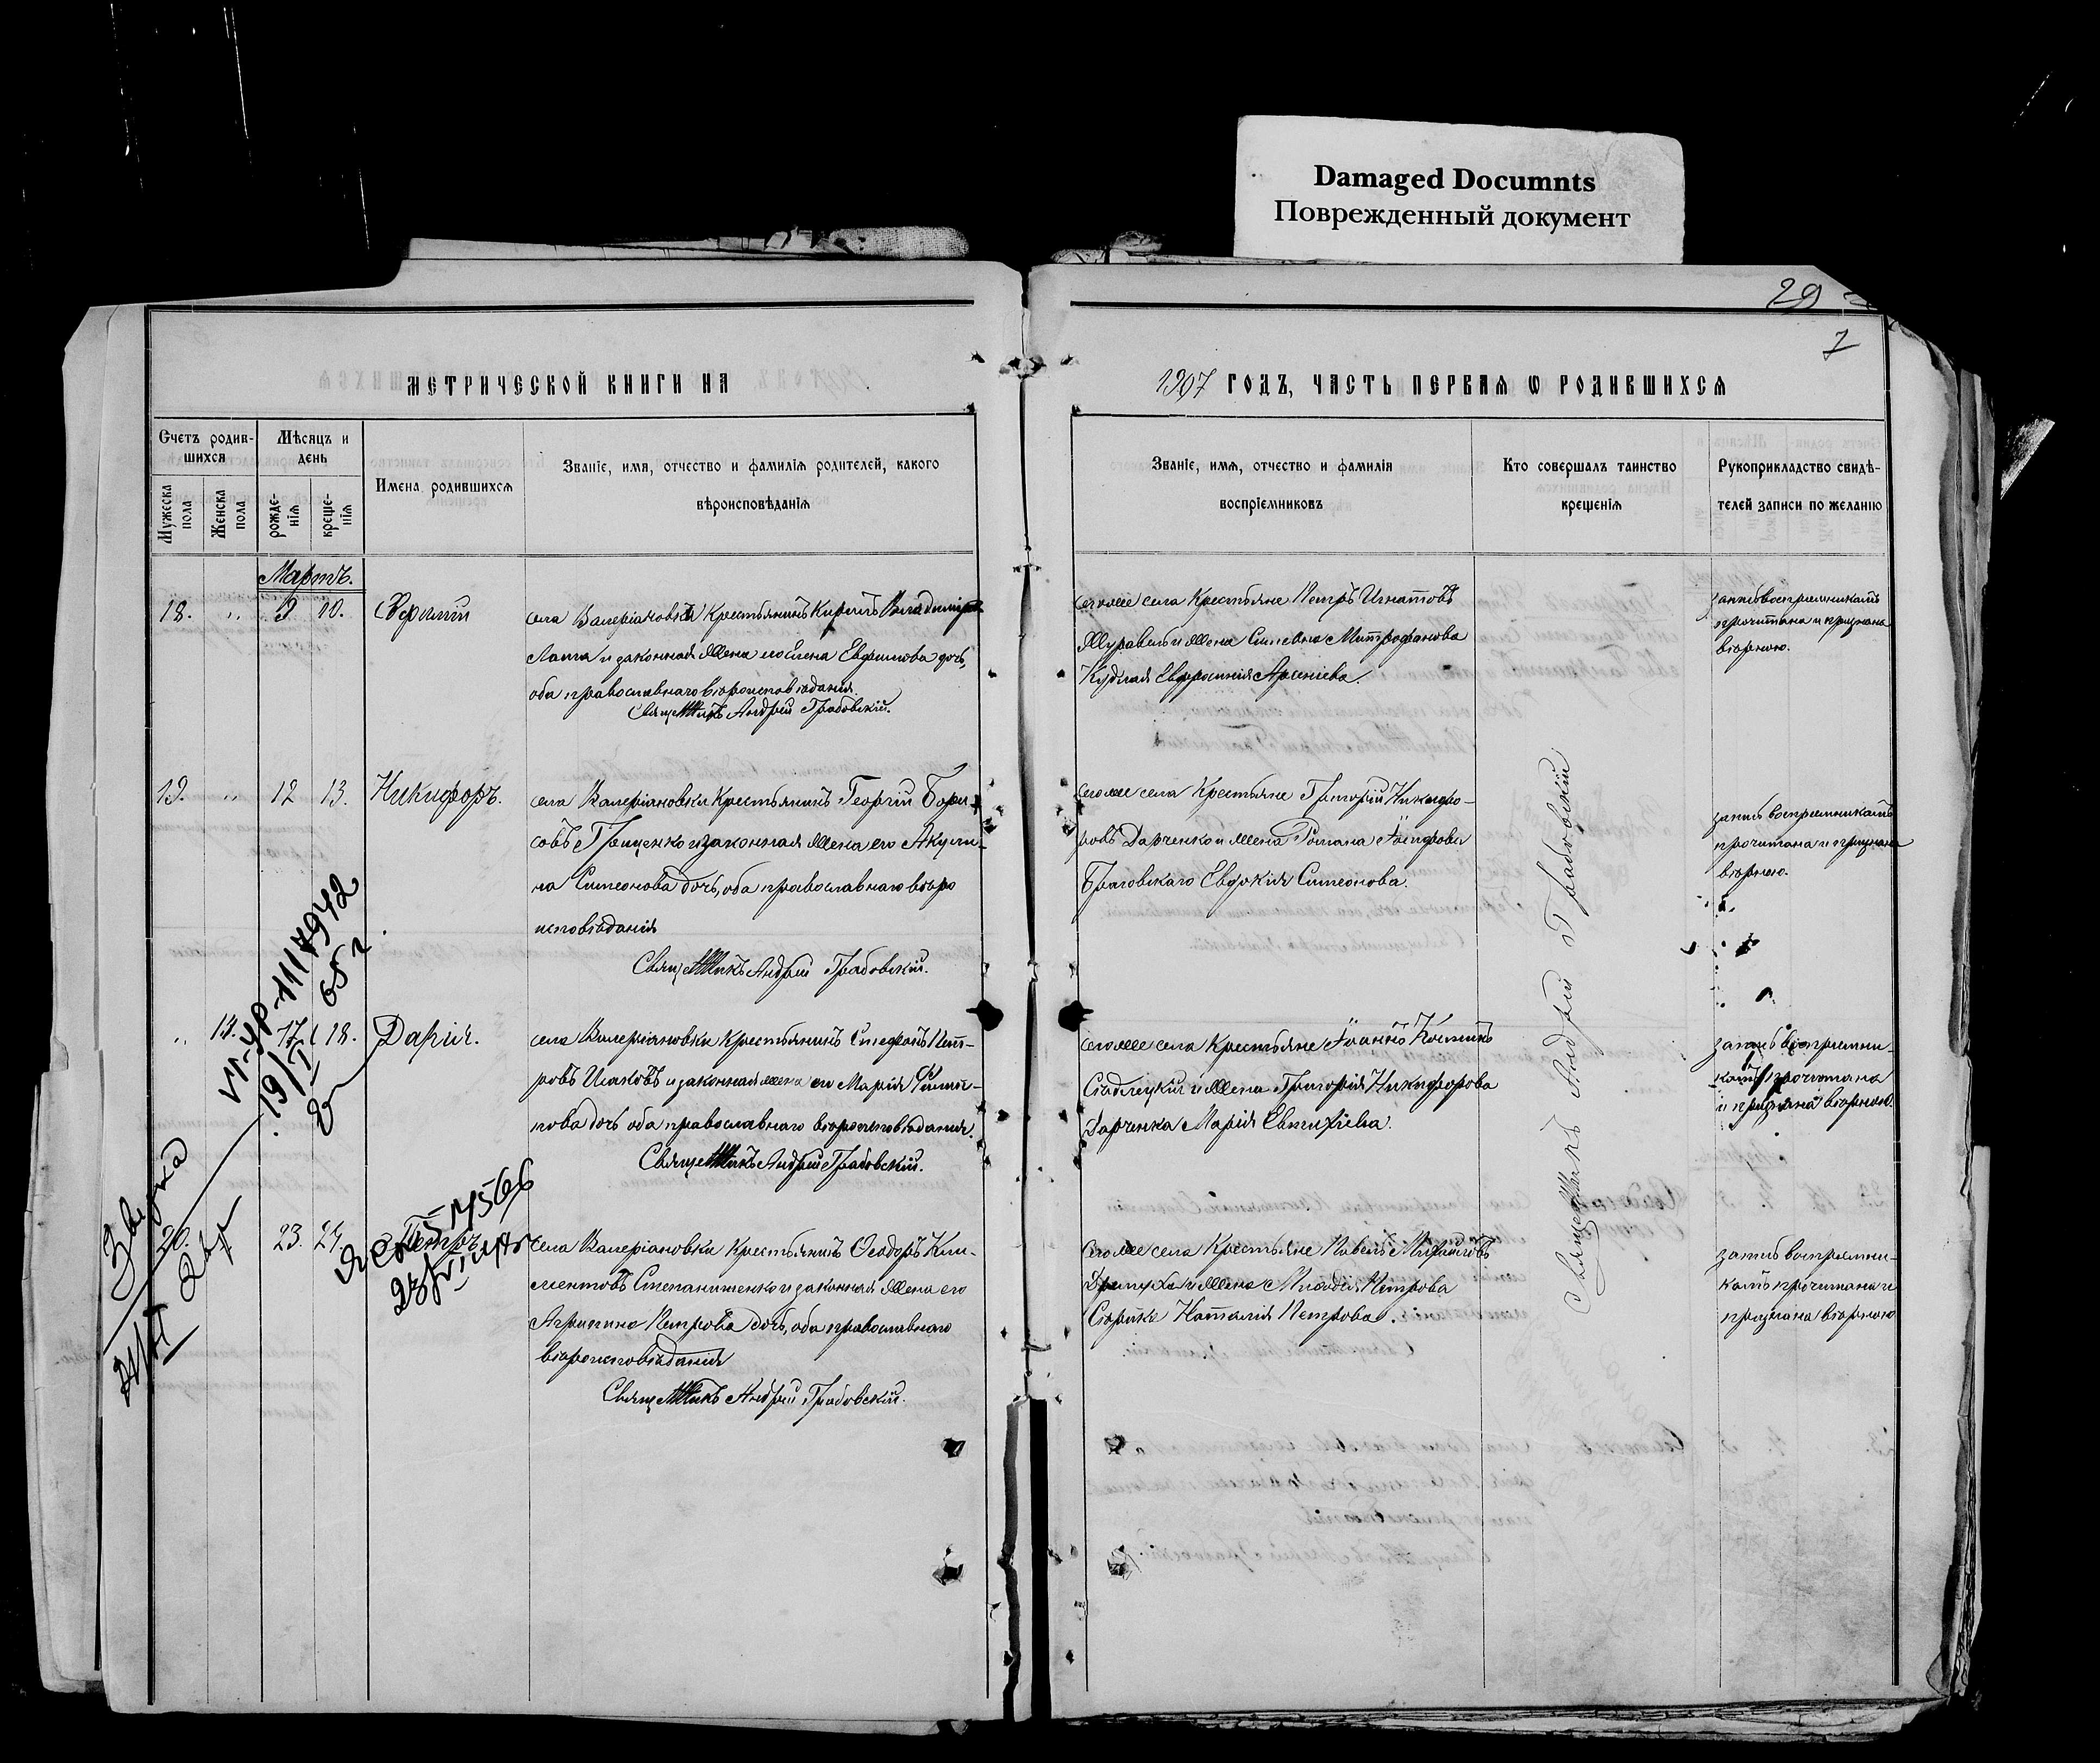 Damaged Documnts
Поврежденный документ
29
7
МЕТРИЧЕСКОЙ КНИГИ НА
1907 ГОДЪ, ЧАСТЬ ПЕРВАЯ Ѡ РОДИВШИХСЯ
Счетъ родив-
шихся
Мужеска
пола
Женска
пола
Мѣсяцъ и
день
рожде-
нія
креще-
нія
Имена родившихся
Званіе, имя, отчество и фамилія родителей, какого
вѣроисповѣданія
Званіе, имя, отчество и фамилія
воспріемниковъ
Кто совершалъ таинство
крещенія
Рукоприкладство свидѣ-
телей записи по желанію
Мартъ.
18. " 9 10.
села Валеріановки Крестьянинъ Кирилъ
и законная жена его Елена Евфимова дочь,
оба православнаго вѣроисповѣданія.
Священникъ Андрей Грабовскій.
сего же села Крестьяне Петръ Игнатовъ
Журавель и жена Симеона Митрофанова
Евфросинія Арсеніева.
запись воспріемникамъ
прочитана и признана
вѣрною.
19. " 12 13. Никифоръ.
села Валеріановки Крестьянинъ Георгій Бори-
совъ Грищенко и законная жена его Акули-
на Симеонова дочь, оба православнаго вѣро
исповѣданія
Священникъ Андрей Грабовскій.
сего же села Крестьяне Григорій Никифо-
ровъ Дарченко и жена Романа
Евдокія Симеонова.
запись воспріемникамъ
прочитана и признана
вѣрною.
" 14. 17 18. Дарія.
села Валеріановки Крестьянинъ Стефанъ Пет-
ровъ и законная жена его Марія
нова дочь оба православнаго вѣроисповѣданія.
Священникъ Андрей Грабовскій.
сего же села Крестьяне Іоаннъ
и жена Григорія Никифорова
Дарченка Марія Евтихіева.
запись воспріемни-
камъ прочитана
и признана вѣрною.
20. 23. 24. Петръ
села Валеріановки Крестьянинъ Ѳеодоръ Кли-
ментовъ Степаниченко и законная жена его
Агрипина Петрова дочь, оба православнаго
вѣроисповѣданія
Священникъ Андрей Грабовскій.
сего же села Крестьяне Павелъ Михайловъ
и жена Петрова
Наталія Петрова.
запись воспріемни-
камъ прочитана и
признана вѣрною
Священникъ Андрей Грабовскій
VI-УР-1117942
19/I 65 г